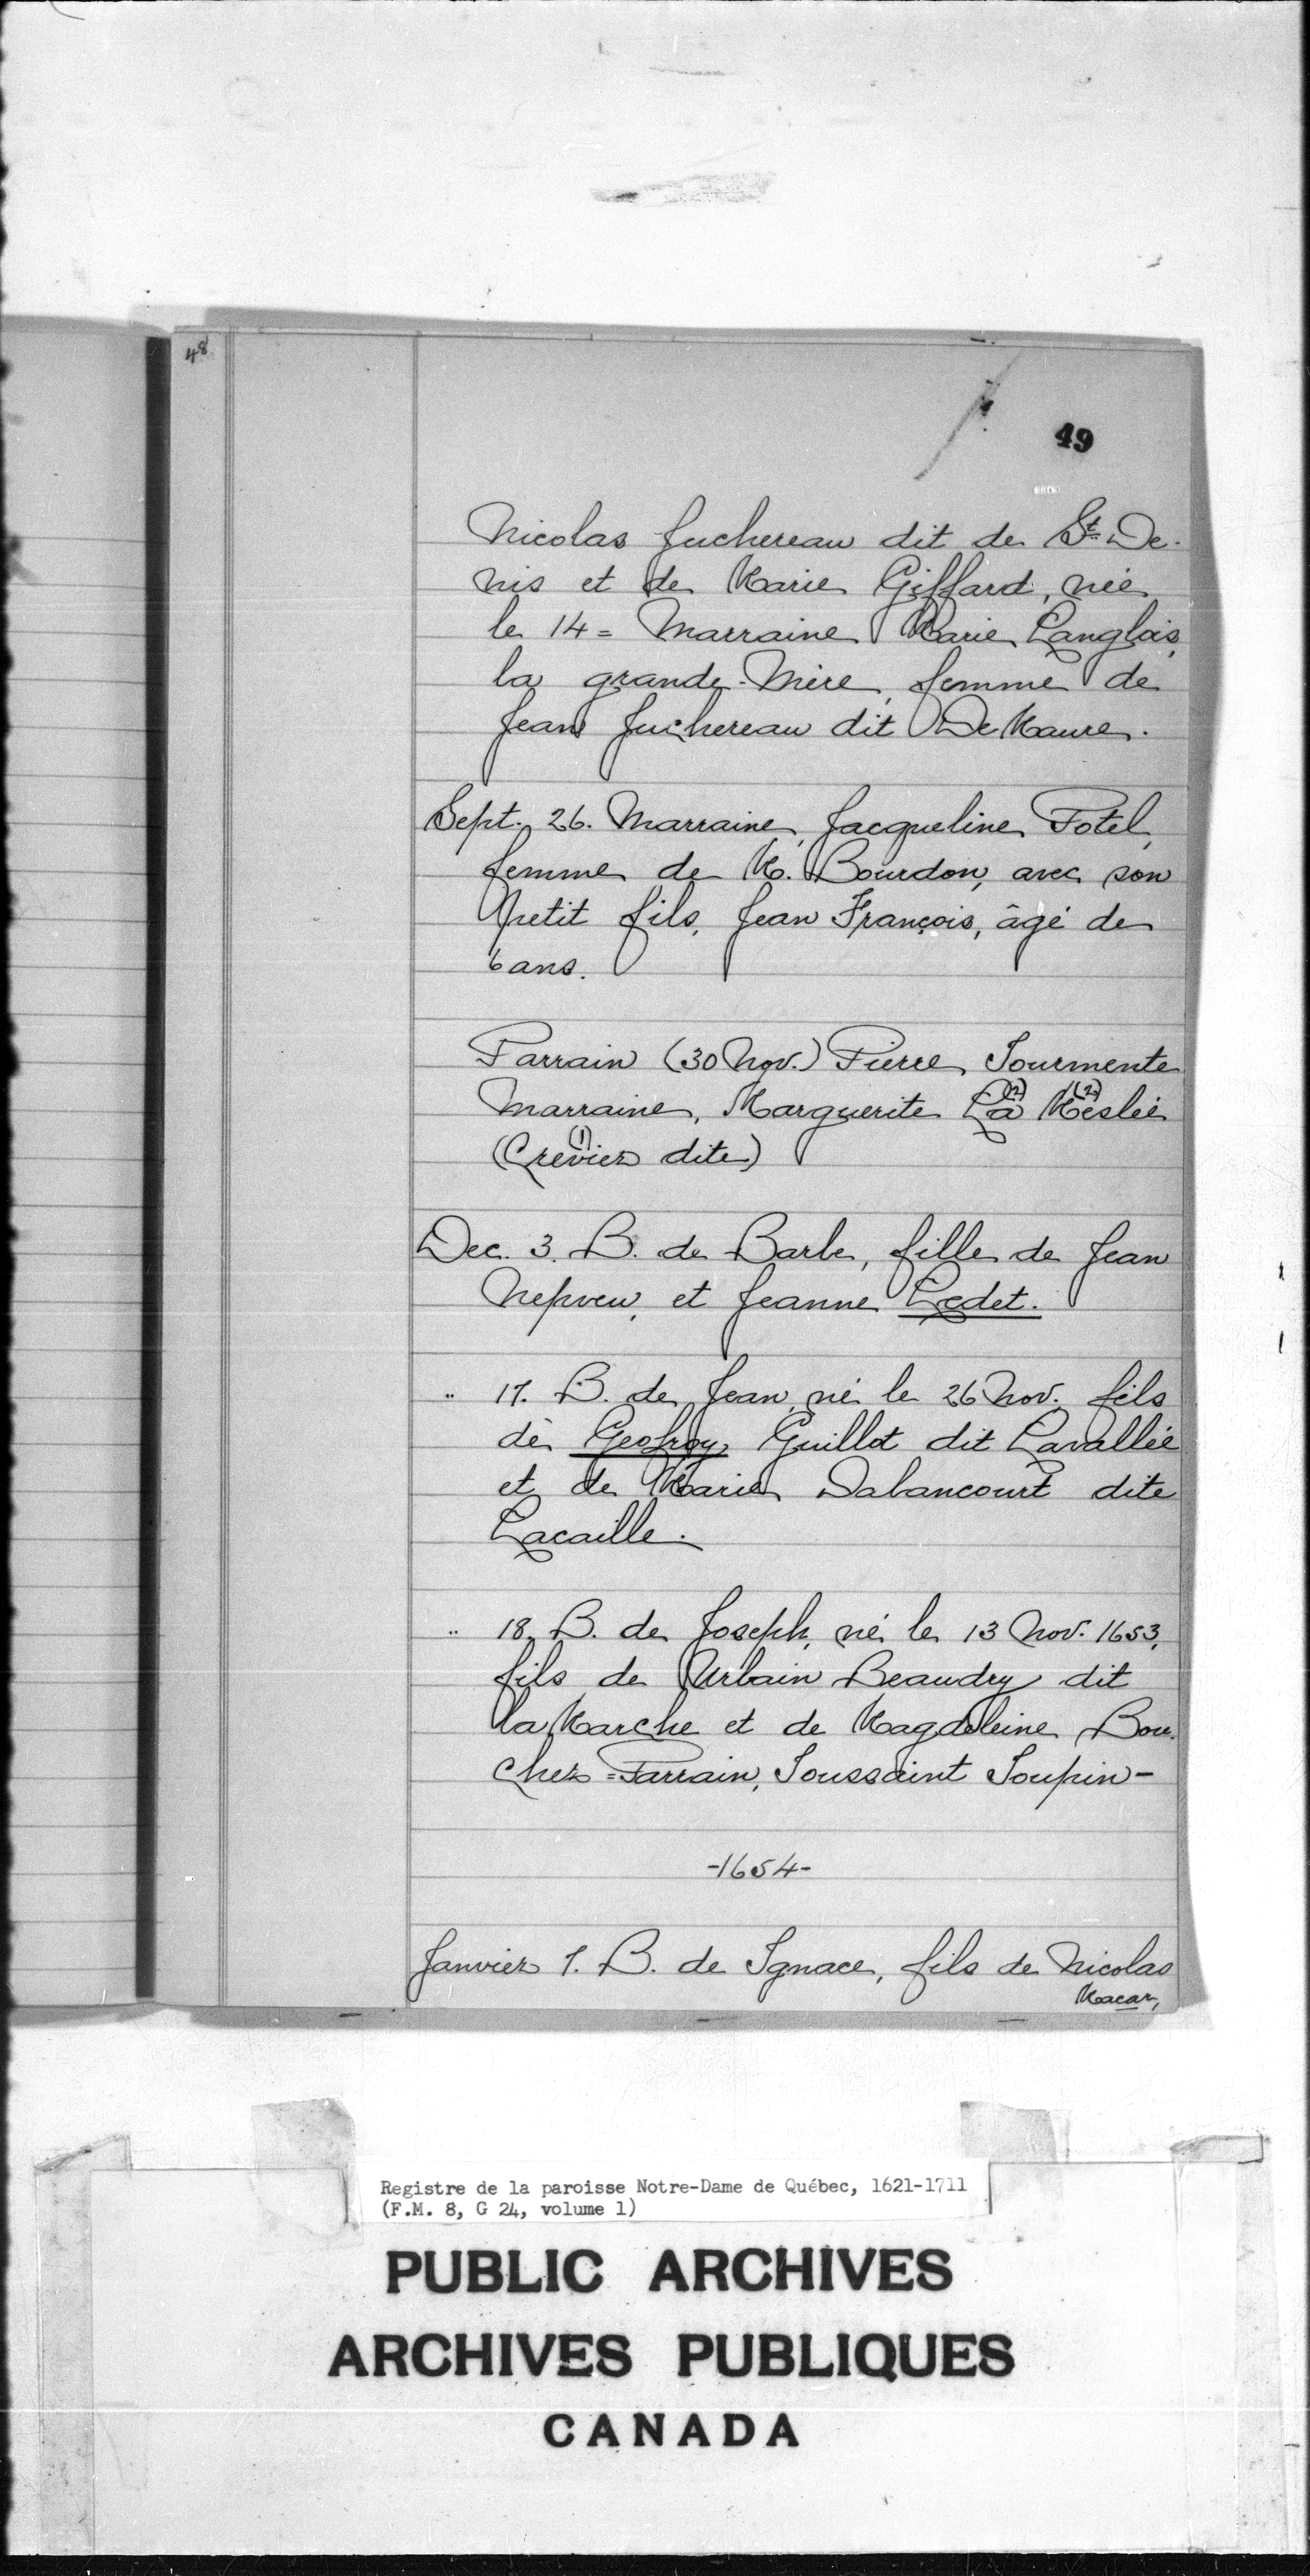 48
49
Nicolas Juchereau dit de St. De-
nis et de Marie Giffard, née
le 14 = Marraine Marie Langlois,
la grande-Mère, femme de
Jean Juchereau dit De Maure.
Sept. 26. Marraine, Jacqueline Potel,
femme de M. Bourdon, avec son
petit fils, Jean François, âgé de
6 ans.
Parrain (30 Nov.) Pierre Tourmente
Marraine, Marguerite La (2) Meslée (2)
(Crevier (1) dite)
Dec. 3. B. de Barbe, fille de Jean
Nepveu, et Jeanne Ledet.
" 17. B. de Jean, né le 26 Nov. fils
de Geofroy Guillot dit Lavallée
et de Marie Dabancourt dite
Lacaille.
" 18. B. de Joseph, né le 13 Nov. 1653,
fils de Urbain Beaudry dit
la Marche et de Magdeleine Bou-
cher = Parrain, Toussaint Toupin -
-1654-
Janvier 1. B. de Ignace, fils de Nicolas
Macar,
Registre de la paroisse Notre-Dame de Québec, 1621-1711
(F.M. 8, G 24, volume 1)
PUBLIC ARCHIVES
ARCHIVES PUBLIQUES
CANADA